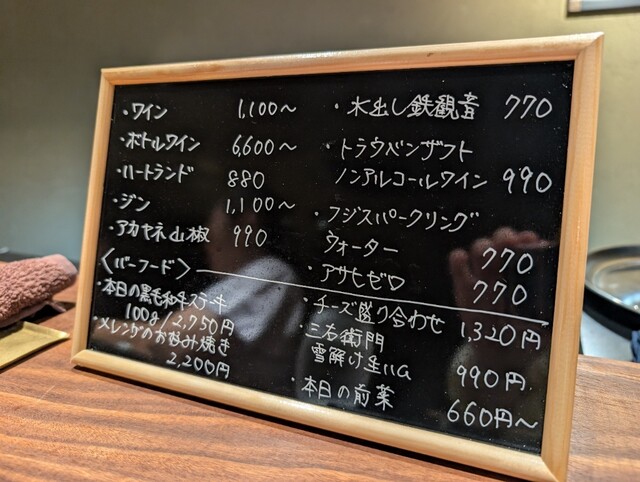 ・ワイン 1,100〜
・ボトルワイン 6,600〜
・ハートランド 880
・ジン 1,100〜
・アカヤネ山椒 990
・水出し鉄観音 770
・トラウベンザフト
ノンアルコールワイン 990
・フジスパークリング
ウォーター 770
・アサヒゼロ 770
〈バーフード〉
・本日の黒毛和牛ステーキ
100g/2,750円
・メレンゲのお好み焼き
2,200円
・チーズ盛り合わせ 1,320円
・三右衛門
雪解け生ハム 990円
・本日の前菜 660円〜